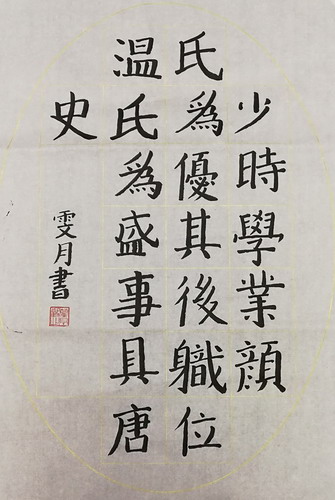 少時學業顔
氏為優其後職位
温氏為盛事具唐
史
雯月書